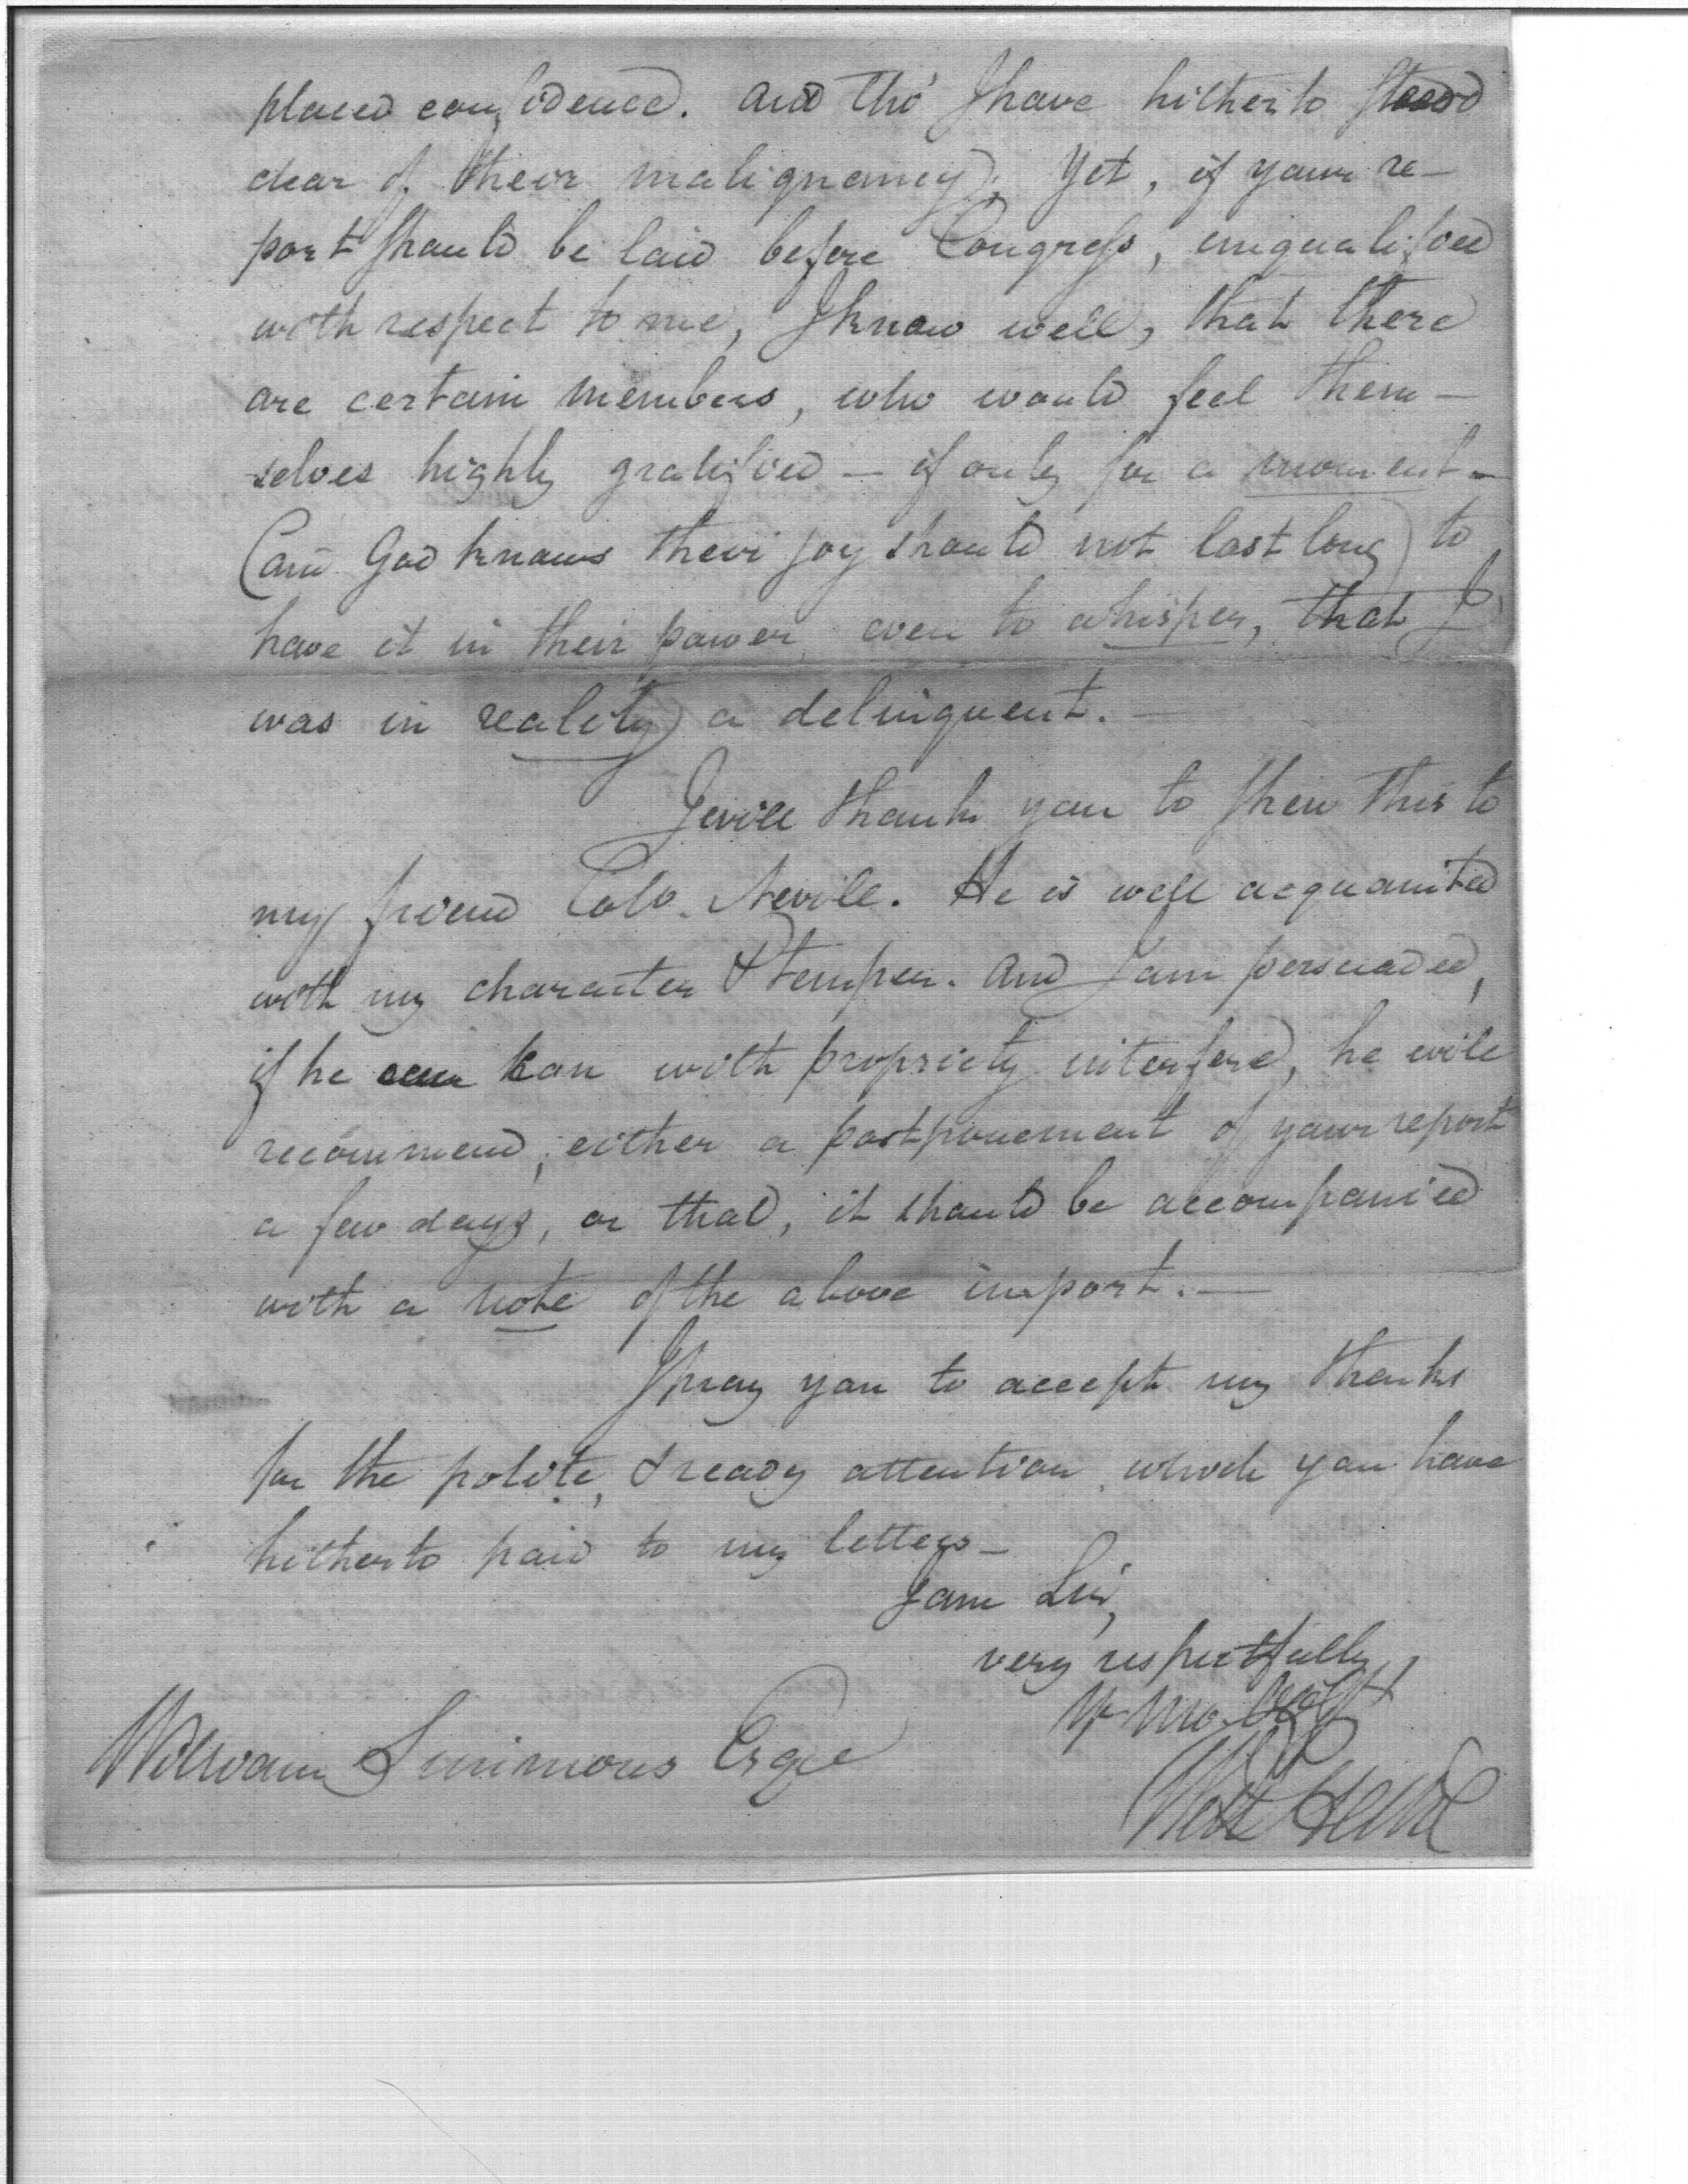 placed confidence. And tho' I have hitherto stood
clear of their malignancy; Yet, if your re-
port should be laid before Congress, unqualified
with respect to me, I know well, that there
are certain members, who would feel them-
selves highly gratified - if only for a moment -
(and God knows their joy should not last long) to
have it in their power, even to whisper, that I
was in reality a delinquent. -
I will thank you to shew this to
my friend Colo. Nevill. He is well acquainted
with my character & temper. And I am persuaded,
if he can can with propriety interfere, he will
recommend, either a postponement of your report
a few days, or that, it should be accompanied
with a note of the above import. -
I pray you to accept my thanks
for the polite, & ready attention, which you have
hitherto paid to my letters -
I am Sir,
very respectfully,
Yr mo. Obt
William Simmons Esqe